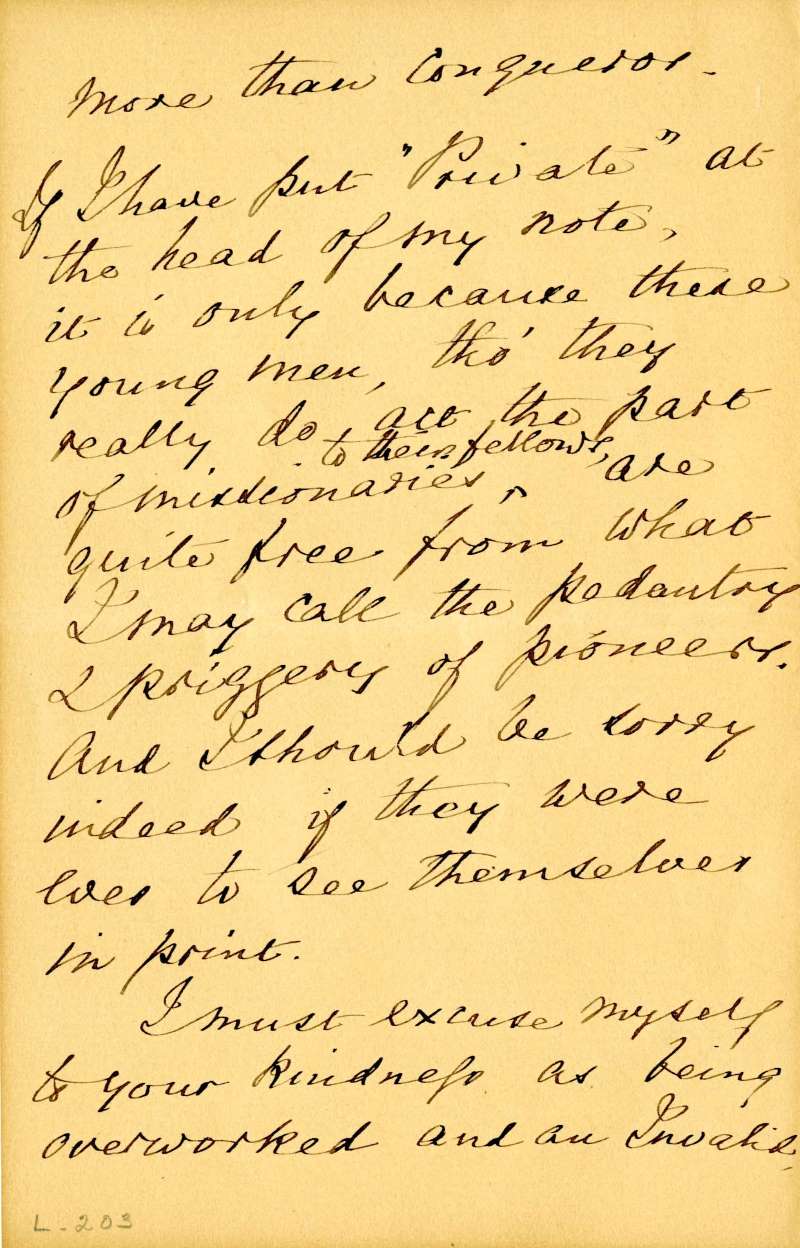 more than conqueror.
If I have put "Private" at
the head of my note,
it is only because these
young men, tho' they
really do act the part
to their fellows,
of missionaries ^ are
quite free from what
I may call the pedantry
& priggery of pioneers.
And I should be sorry
indeed if they were
ever to see themselves
in print.
I must excuse myself
to your kindness as being
overworked and an Invalid,
L-203